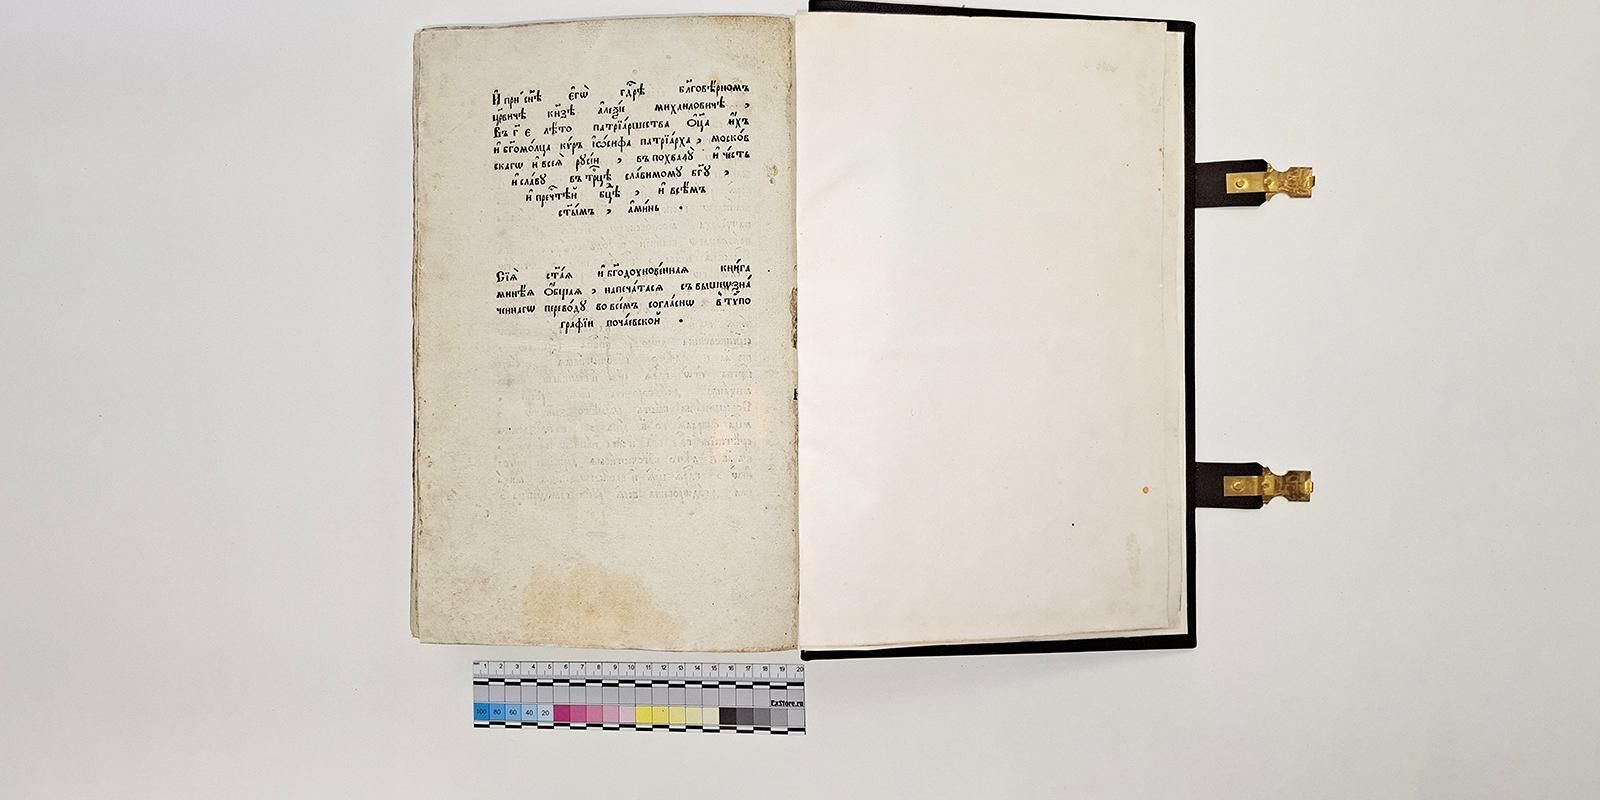 И҆ при сн҃ѣ є҆гѡ̀ гдⷭ҇рѣ бл҃говѣ́рномъ
цр҃вичѣ кн҃зѣ а҆леѯі́е михаиловичѣ ,
Въ г҃ є лѣ́то патрїа́ршества ѻ҆ц҃а и҆́хъ
и҆ бг҃омо́лца кѵ́ръ і҆ѡ́сифа патрїа́рха , моско́в
скагѡ и҆ всеѧ̀ русі́и , въ похвалꙋ̀ и҆ че́сть
и҆ сла́вꙋ въ трⷪ҇цѣ сла́вимомꙋ бг҃ꙋ ,
и҆ пречⷭ҇тѣй бц҃ѣ , и҆ всѣ́мъ
ст҃ы́мъ , а҆ми́нь .
Сїѧ̀ ст҃а́ѧ и҆ бг҃одохнове́ннаѧ кни́га
мине́ѧ ѻ҆́бщаѧ , напеча́тасѧ съ вышеѡзна́
ченнагѡ перево́дꙋ во все́мъ согла́снѡ в̾ тѵпо
гра́фїи поча́евской .
1 2 3 4 5 6 7 8 9 10 11 12 13 14 15 16 17 18 19 20
ExStore.ru
100 80 60 40 20